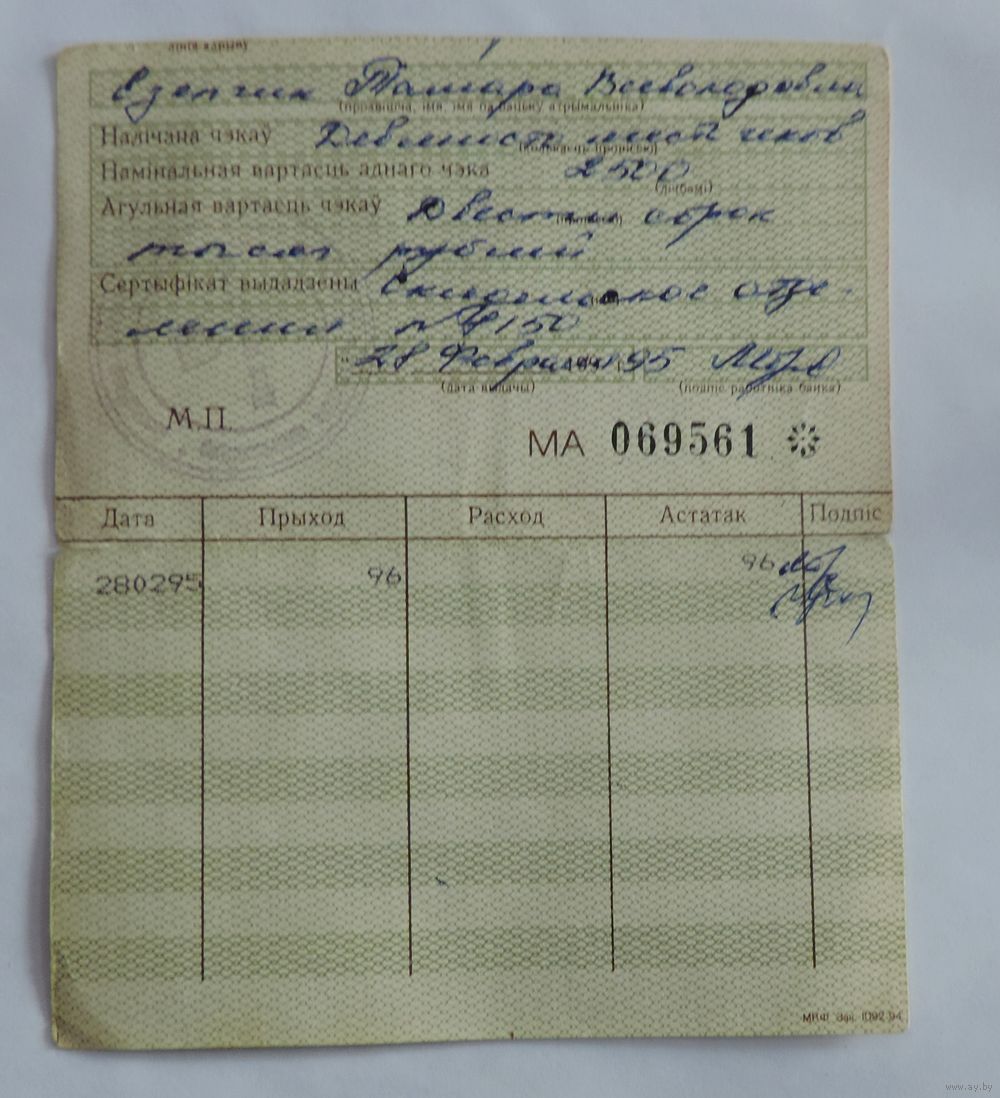 лінія адрыву
Тамара Всеволодовна
(прозвішча, імя, імя па бацьку атрымальніка)
Налічана чэкаў Девяносто шест чеков
(колькасць пропісью)
Намінальная вартасць аднаго чэка 2500
(лічбамі)
Агульная вартасць чэкаў Двести сорок
тысяч рублей
Сертыфікат выдадзены Скидельское отде-
ления № 8150
"28 Февраля 1995
(дата выдачы) (подпіс работніка банка)
М.П.
МА 069561
Дата Прыход Расход Астатак Подпіс
280295 96 96
МПФ Зак. 1092-94
www.ay.by